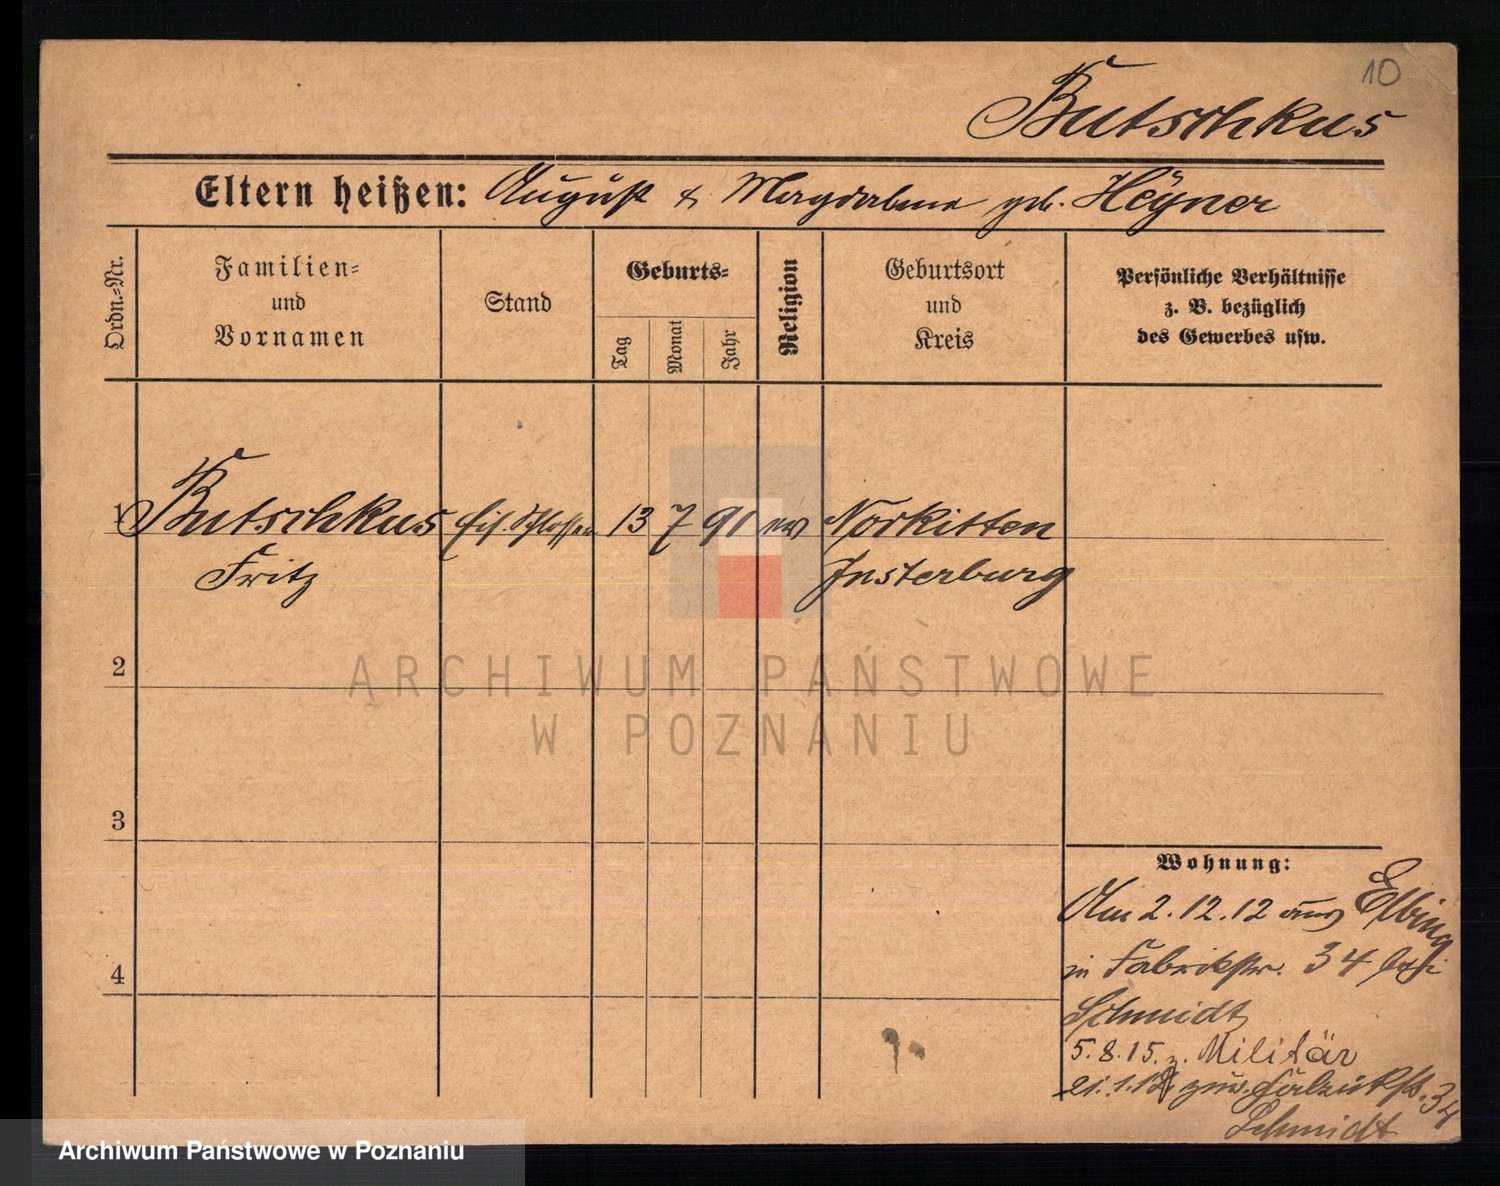 10
Butschkus
Eltern heißen: August & Magdalene geb. Heyner
Ordn.=Nr.
Familien=
und
Vornamen
Stand
Geburts=
Tag
Monat
Jahr
Religion
Geburtsort
und
Kreis
Persönliche Verhältnisse
z. B. bezüglich
des Gewerbes usw.
1 Butschkus Eis. Schlosser 13 7 91 ev Norkitten
Fritz Insterburg
2
3
4
Wohnung:
Am 2.12.12 aus Elbing
in Fabrikstr. 34 bei
Schmidt
5.8.15. z. Militär
21.1. zur. 34
Schmidt
ARCHIWUM PAŃSTWOWE
W POZNANIU
Archiwum Państwowe w Poznaniu